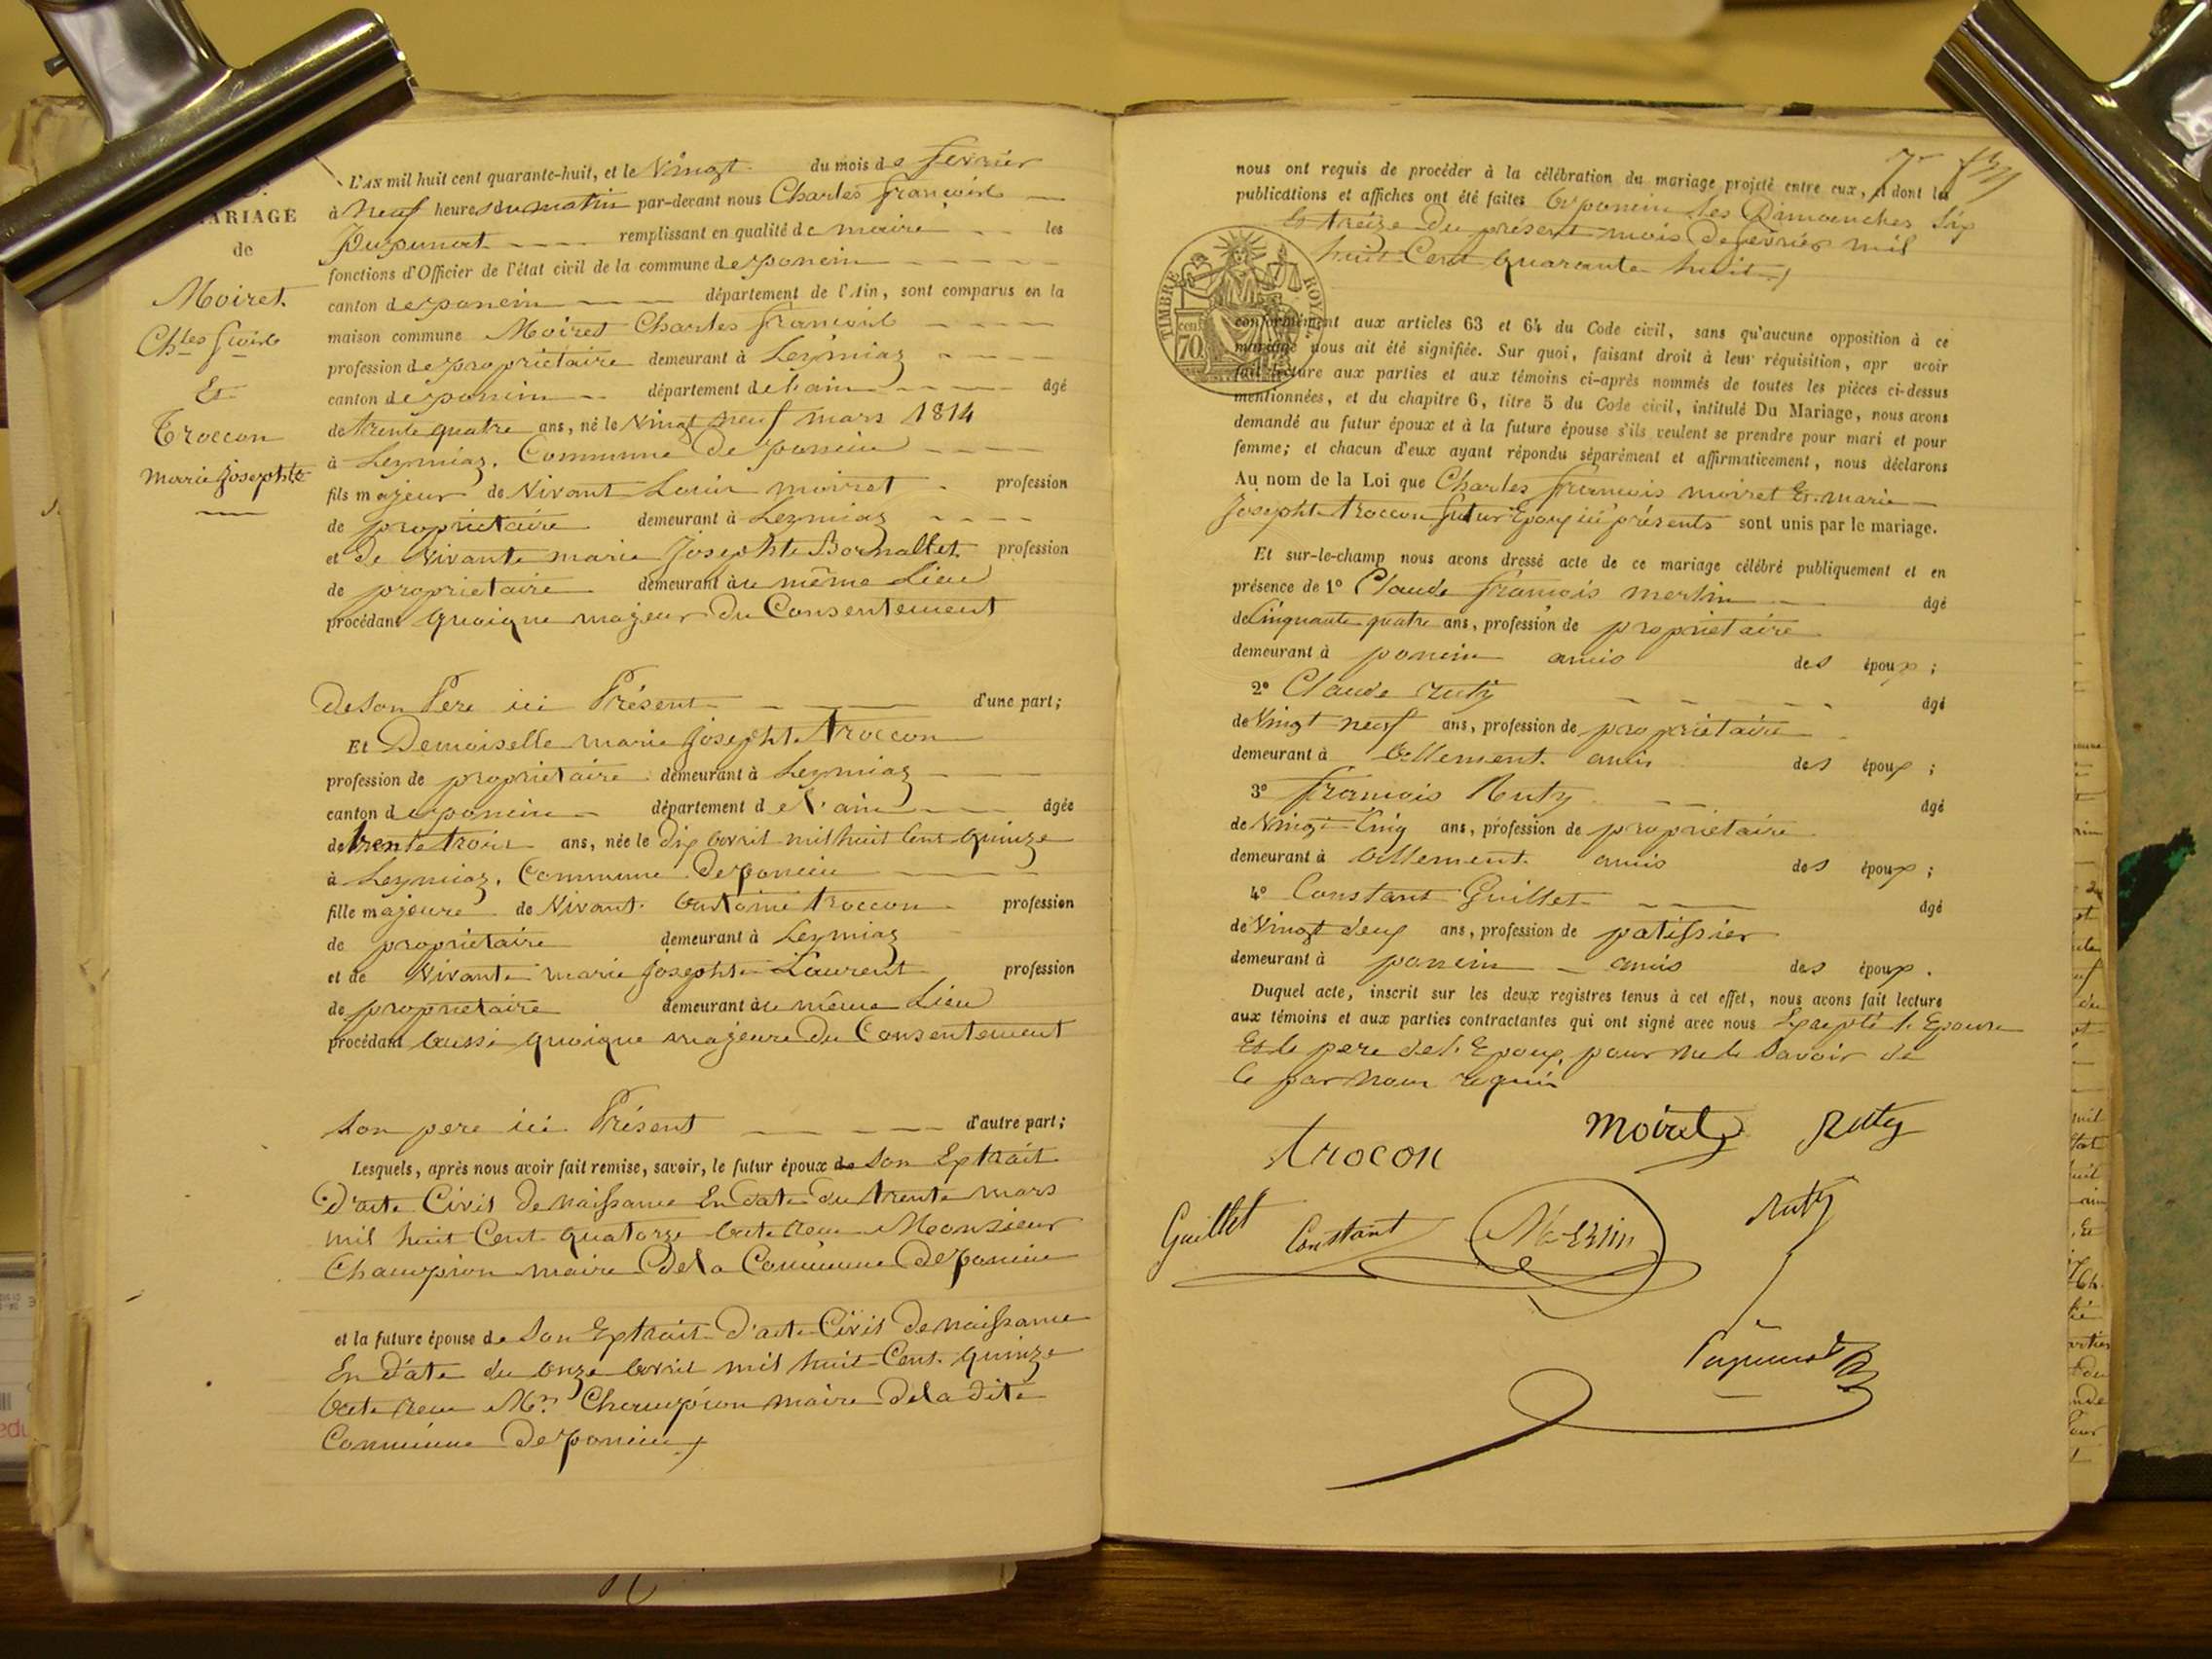 MARIAGE
de
Moiret
Ch.les f.cois
Et
Troccon
marie josephte
L'AN mil huit cent quarante-huit, et le Vingt du mois de fevrier
à Neuf heures du matin par-devant nous Charles françois
remplissant en qualité de maire les
fonctions d'Officier de l'état civil de la commune de poncin
canton de poncin département de l'Ain, sont comparus en la
maison commune Moiret Charles francois
profession de proprietaire demeurant à Leymiaz
canton de poncin département de l'ain âgé
de trente quatre ans, né le Vingt neuf mars 1814
à Leymiaz, Commune De poncin
fils majeur de Vivant Louis moiret profession
de proprietaire demeurant à Leymiaz
et De Vivante marie Josephte profession
de proprietaire demeurant àu même Lieu
procédant quoique majeur Du Consentement
De son Pere ici Présent d'une part;
Et Demoiselle marie josephte troccon
profession de proprietaire demeurant à Leymiaz
canton de poncin département de l'ain âgée
de trente trois ans, née le Dix avril mil huit Cent quinze
à Leymiaz, Commune De poncin
fille majeure de Vivant antoine troccon profession
de proprietaire demeurant à Leymiaz
et de Vivante marie josephte Laurent profession
de proprietaire demeurant àu même Lieu
procédant aussi quoique majeure Du Consentement
son pere ici Présent d'autre part;
Lesquels, après nous avoir fait remise, savoir, le futur époux de son Extrait
D'acte Civil De naissance En date du trente mars
mil huit Cent quatorze acte reçu Monsieur
Champion maire De la Commune De poncin
et la future épouse de son Extrait D'acte Civil De naissance
En Date du onze avril mil huit Cent quinze
acte reçu Mr Champion maire De la Dite
Commune De poncin
nous ont requis de procéder à la célébration du mariage projeté entre eux, et dont les
publications et affiches ont été faites a poncin les Dimanches Six
Et treize Du présent mois De fevrier mil
huit Cent quarante huit
TIMBRE ROYAL
70 cent
conformément aux articles 63 et 64 du Code civil, sans qu'aucune opposition à ce
mariage nous ait été signifiée. Sur quoi, faisant droit à leur réquisition, apr avoir
fait lecture aux parties et aux témoins ci-après nommés de toutes les pièces ci-dessus
mentionnées, et du chapitre 6, titre 5 du Code civil, intitulé Du Mariage, nous avons
demandé au futur époux et à la future épouse s'ils veulent se prendre pour mari et pour
femme; et chacun d'eux ayant répondu séparément et affirmativement, nous déclarons
Au nom de la Loi que Charles francois moiret Et marie
Josephte troccon futur Epoux ici présents sont unis par le mariage.
Et sur-le-champ nous avons dressé acte de ce mariage célébré publiquement et en
présence de 1° Claude francois merlin âgé
de Cinquante quatre ans, profession de proprietaire
demeurant à poncin amis des époux;
2° Claude Ruty âgé
de Vingt neuf ans, profession de proprietaire
demeurant à allement amis des époux;
3° francois Ruty âgé
de Vingt Cinq ans, profession de proprietaire
demeurant à allement amis des époux;
4° Constant Guillet âgé
de Vingt deux ans, profession de patissier
demeurant à poncin amis des époux.
Duquel acte, inscrit sur les deux registres tenus à cet effet, nous avons fait lecture
aux témoins et aux parties contractantes qui ont signé avec nous Excepté l'Epouse
Et le pere de l'Epoux pour ne le Savoir de
Ce par Nous requis
trocon
Moiret
Ruty
Guillet Constant
Merlin
Ruty